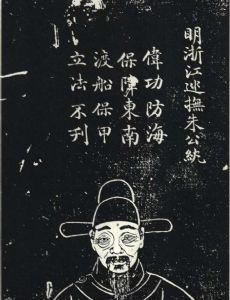 明浙江巡撫朱公紈
偉功防海
保障東南
渡船保甲
立法不刊